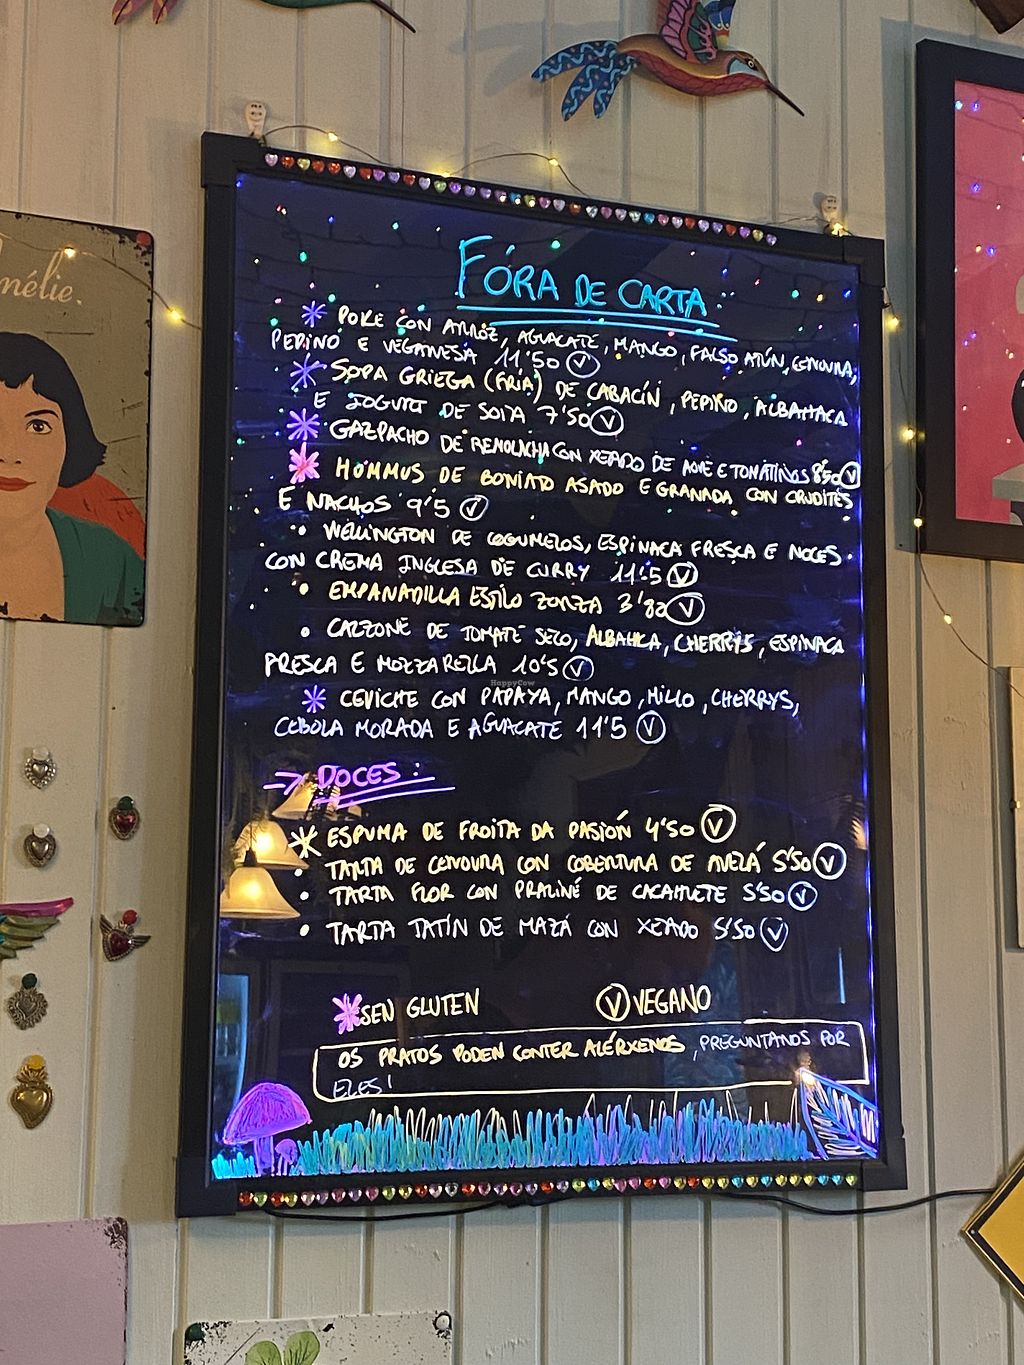 mélie.
FÓRA DE CARTA
* POKE CON ARROZ, AGUACATE, MANGO, FALSO ATÚN, CENOURA,
PEPINO E VEGANESA 11'50 Ⓥ
* SOPA GRIEGA (FRÍA) DE CABACÍN, PEPINO, ALBAHACA
E IOGURT DE SOIA 7'50 Ⓥ
* GAZPACHO DE REMOLACHA CON XEADO DE AOVE E TOMATIÑOS 8'50 Ⓥ
* HUMMUS DE BONIATO ASADO E GRANADA CON CRUDITÉS
E NACHOS 9'5 Ⓥ
• WELLINGTON DE COGUMELOS, ESPINACA FRESCA E NOCES
CON CREMA INGLESA DE CURRY 11'5 Ⓥ
• EMPANADILLA ESTILO ZONZA 3'80 Ⓥ
• CALZONE DE TOMATE SECO, ALBAHACA, CHERRYS, ESPINACA
FRESCA E MOZZARELLA 10'5 Ⓥ
* CEVICHE CON PAPAYA, MANGO, MILLO, CHERRYS,
CEBOLA MORADA E AGUACATE 11'5 Ⓥ
→ DOCES:
* ESPUMA DE FROITA DA PASIÓN 4'50 Ⓥ
• TARTA DE CENOURA CON COBERTURA DE AVELÁ 5'50 Ⓥ
• TARTA FLOR CON PRALINÉ DE CACAHUETE 5'50 Ⓥ
• TARTA TATÍN DE MAZÁ CON XEADO 5'50 Ⓥ
* SEN GLUTEN Ⓥ VEGANO
OS PRATOS PODEN CONTER ALÉRXENOS, PREGÚNTANOS POR
ELES!
HappyCow